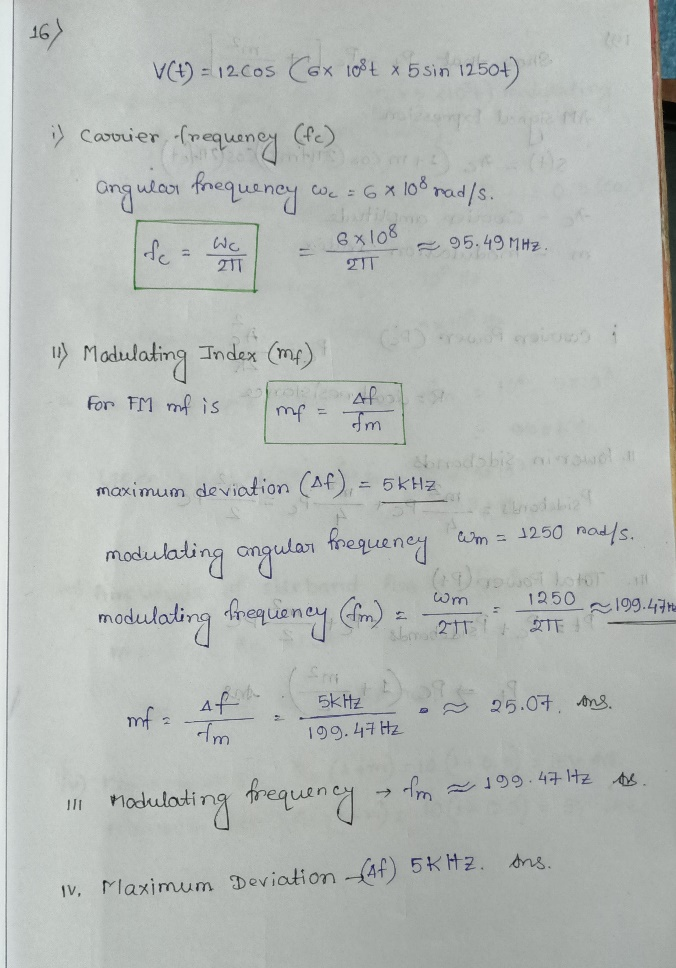 16)
V(t) = 12 cos (6x 10⁸t x 5 sin 1250t)
i) Carrier frequency (fc)
angular frequency ωc = 6 x 10⁸ rad/s.
fc = ωc/2π = 6x10⁸/2π ≈ 95.49 MHz.
11) Modulating Index (mf)
For FM mf is mf = Δf/fm
maximum deviation (Δf) = 5kHz
modulating angular frequency ωm = 1250 rad/s.
modulating frequency (fm) = ωm/2π = 1250/2π ≈ 199.47Hz
mf = Δf/fm = 5kHz/199.47 Hz ≈ 25.07. Ans.
111 Modulating frequency → fm ≈ 199.47 Hz Ans.
IV. Maximum Deviation → (Δf) 5KHZ. Ans.